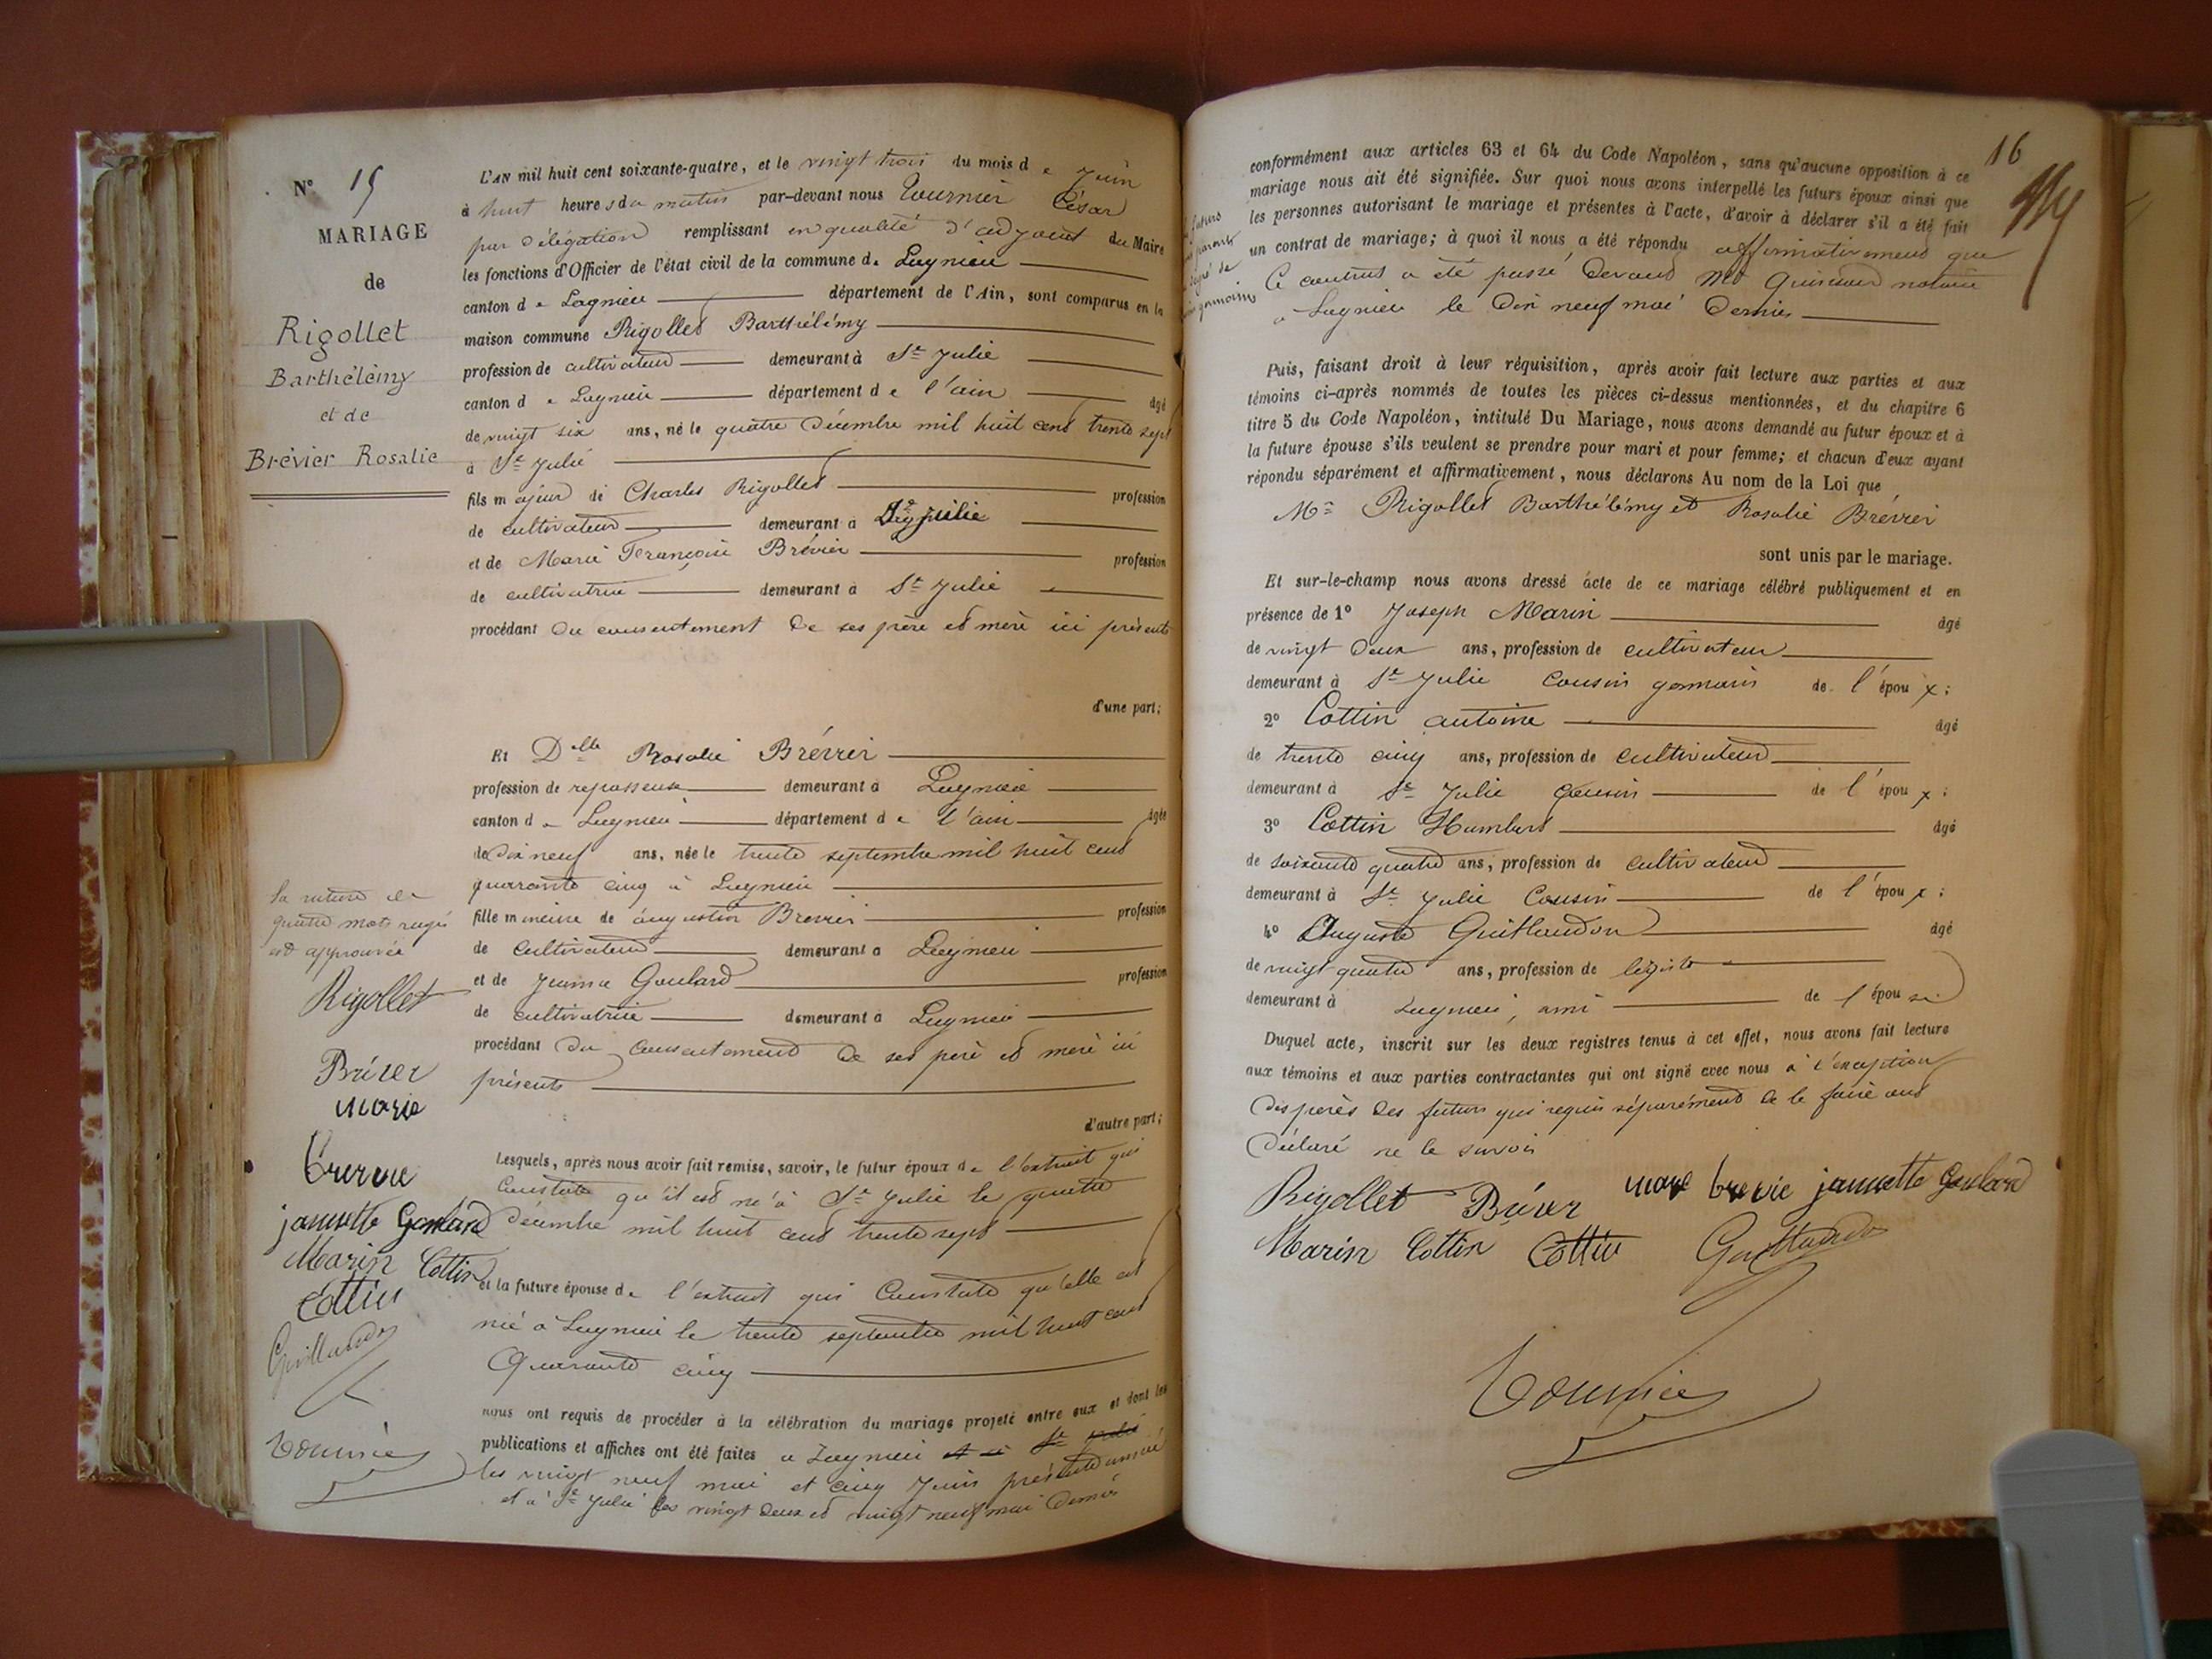 N° 15
MARIAGE
de
Rigollet
Barthélémy
et de
Brévier Rosalie
L'AN mil huit cent soixante-quatre, et le vingt trois du mois de Juin
à huit heures du matin par-devant nous Tournier César
par délégation remplissant en qualité d'adjoint du Maire
les fonctions d'Officier de l'état civil de la commune de Lagnieu
canton de Lagnieu département de l'Ain, sont comparus en la
maison commune Rigollet Barthélémy
profession de cultivateur demeurant à Ste Julie
canton de Lagnieu département de l'ain âgé
de vingt six ans, né le quatre Décembre mil huit cent trente sept
à Ste Julie
fils majeur de Charles Rigollet profession
de cultivateur demeurant à Ste Julie
et de Marie Françoise Brévier profession
de cultivatrice demeurant à Ste Julie
procédant du consentement de ses père et mère ici présents
d'une part;
Et Delle Rosalie Brévier
profession de repasseuse demeurant à Lagnieu
canton de Lagnieu département de l'ain âgée
de dix neuf ans, née le trente septembre mil huit cent
quarante cinq à Lagnieu
fille mineure de augustin Brevier profession
de cultivateur demeurant à Lagnieu
et de Jeanne Goulard profession
de cultivatrice demeurant à Lagnieu
procédant du consentement de ses père et mère ici
présents
d'autre part;
Lesquels, après nous avoir fait remise, savoir, le futur époux de l'extrait qui
Constate qu'il est né à Ste Julie le quatre
décembre mil huit cent trente sept
et la future épouse de l'extrait qui Constate qu'elle est
née à Lagnieu le trente septembre mil huit cent
Quarante cinq
nous ont requis de procéder à la célébration du mariage projeté entre eux et dont les
publications et affiches ont été faites à Lagnieu et à Ste Julie
les vingt neuf mai et cinq Juin présente année
et à Ste Julie les vingt deux et vingt neuf mai dernier
la rature de
quatre mots rayés
est approuvée
Rigollet
Brévier
marie
brevie
jannette Goulard
Marin Cottin
Cottin
Guillaudon
Tournier
16
conformément aux articles 63 et 64 du Code Napoléon, sans qu'aucune opposition à ce
mariage nous ait été signifiée. Sur quoi nous avons interpellé les futurs époux ainsi que
les personnes autorisant le mariage et présentes à l'acte, d'avoir à déclarer s'il a été fait
un contrat de mariage; à quoi il nous a été répondu affirmativement que
Ce contrat a été passé devant Me notaire
à Lagnieu le dix neuf mai dernier
futurs
parents
degré de
germains
Puis, faisant droit à leur réquisition, après avoir fait lecture aux parties et aux
témoins ci-après nommés de toutes les pièces ci-dessus mentionnées, et du chapitre 6
titre 5 du Code Napoléon, intitulé Du Mariage, nous avons demandé au futur époux et à
la future épouse s'ils veulent se prendre pour mari et pour femme; et chacun d'eux ayant
répondu séparément et affirmativement, nous déclarons Au nom de la Loi que
Mr Rigollet Barthélémy et Rosalie Brévier
sont unis par le mariage.
Et sur-le-champ nous avons dressé acte de ce mariage célébré publiquement et en
présence de 1° Joseph Marin âgé
de vingt deux ans, profession de cultivateur
demeurant à Ste Julie Cousin germain de l'époux;
2° Cottin antoine âgé
de trente cinq ans, profession de cultivateur
demeurant à Ste Julie Cousin de l'époux;
3° Cottin Humbert âgé
de soixante quatre ans, profession de cultivateur
demeurant à Ste Julie Cousin de l'époux;
4° Auguste Guillaudon âgé
de vingt quatre ans, profession de légiste
demeurant à Lagnieu, ami de l'épouse
Duquel acte, inscrit sur les deux registres tenus à cet effet, nous avons fait lecture
aux témoins et aux parties contractantes qui ont signé avec nous à l'exception
des pères des futurs qui requis séparément de le faire ont
déclaré ne le savoir
Rigollet Brévier marie brevie jannette Goulard
Marin Cottin Cottin Guillaudon
Tournier